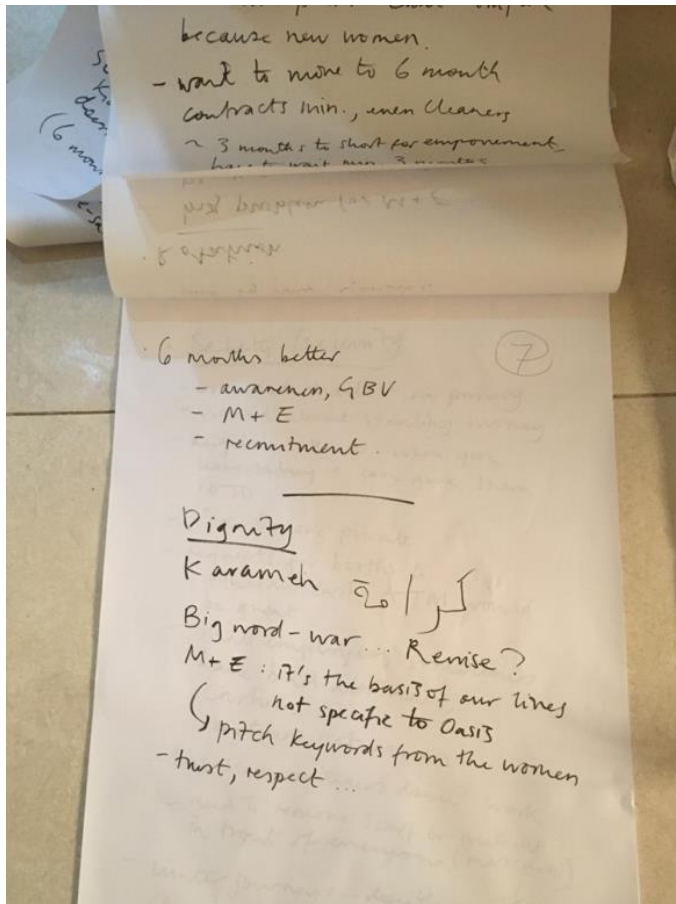 because new women.
- want to move to 6 month
contracts min., even cleaners
~ 3 months to short for empowerment
have to wait min. 3 months
6 months better
7
- awareness, GBV
- M + E
- recruitment.
Dignity
Karameh كرامة
Big word - war... Revise?
M + E : it's the basis of our lives
not specific to Oasis
pitch keywords from the women
- trust, respect ...